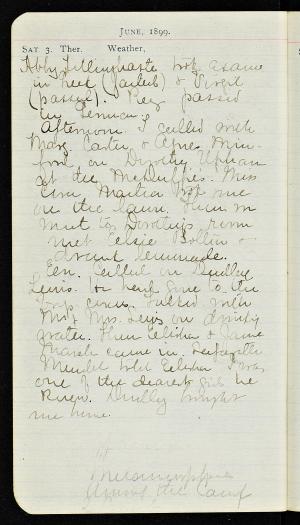 JUNE, 1899.
SAT. 3. Ther. Weather,
Abby Tillinghaste took exams
in (failed) & Virgil
(passed). Peg passed
in German.
Afternoon. I called with
Marg. Carter & Agnes
on Dorothy Upham
at the McDuffie's. Miss
Martin met me
on the lawn. Then
went to Dorothy's room
met Elsie Bollin &
drank lemonade.
Eve. Called on Dudley
Lewis. He had gone to the
circus. Talked with
Mr & Mrs. Lewis on
water. Then Elisha & Jamie
Marsh came in. Lafayette
Mendel told Elisha I was
one of the dearest girls he
knew. Dudley brought
me home.
the